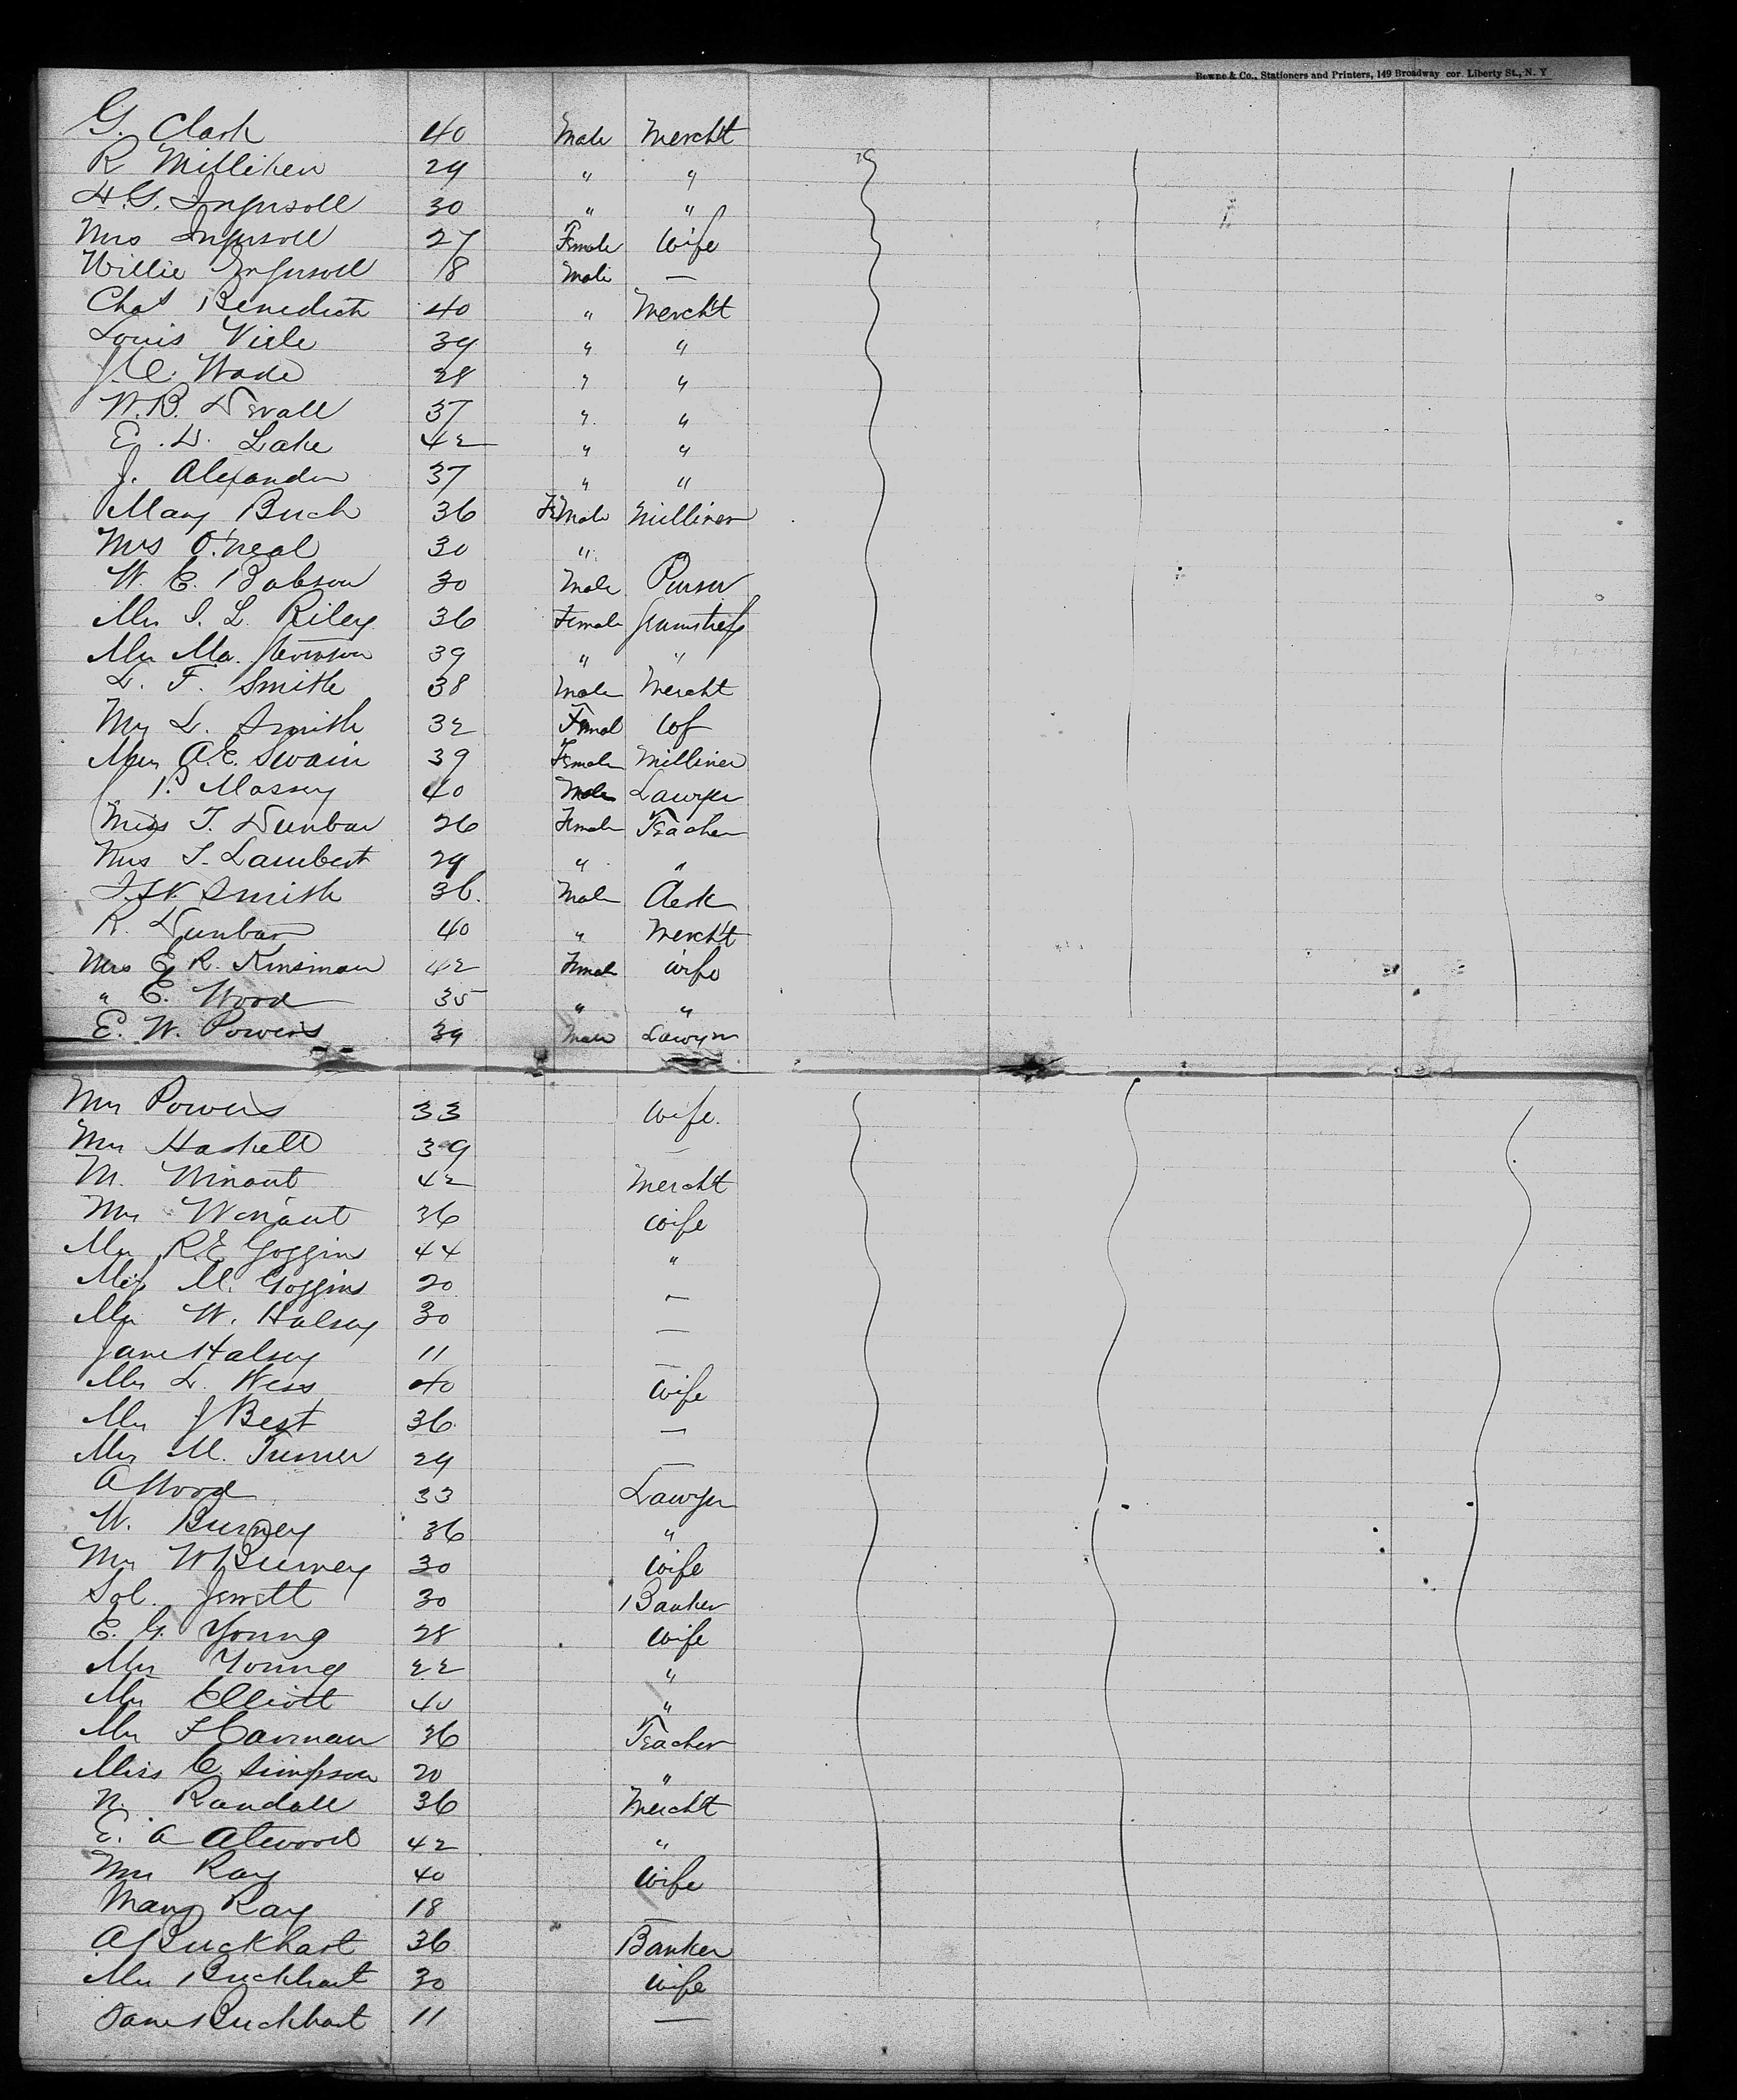 Bowne & Co., Stationers and Printers, 149 Broadway cor. Liberty St., N. Y
G. Clark 40 Male Mercht
R Milliken 29 " "
H. G. Ingersoll 30 " "
Mrs Ingersoll 27 Female Wife
Willie Ingersoll 18 Male —
Chas Benedict 40 " Mercht
Louis Viele 39 " "
J. C. Wade 28 " "
W. B. Duvall 37 " "
E. D. Lake 42 " "
J. Alexander 37 " "
Mary Buch 36 Female Milliner
Mrs O'neal 30 "
W. E. Babson 30 Male Purser
Mrs S. L. Riley 36 Female Seamstress
Mrs Ma. 39 " "
D. F. Smith 38 Male Mercht
Mrs D. Smith 32 Femal Wf
Mrs A. E. Swain 39 Female Milliner
P. Massey 40 Male Lawyer
Miss T. Dunbar 26 Female Teacher
Mrs S. Lambert 29 " "
Smith 36. Male Clerk
R. Dunbar 40 " Mercht
Mrs E. R. Kinsman 42 Female Wife
" E. Wood 35 " "
E. W. Powers 39 Male Lawyer
Mrs Powers 33 Wife.
Mrs Haskell 39 —
M. Winant 42 Mercht
Mrs Winant 36 Wife
Mrs R. E Goggins 44 "
Miss M. Goggins 20 —
Mrs W. Halsey 30 —
Jane Halsey 11 —
Mrs D. Wess 40 Wife
Mrs J Best 36 —
Mrs M. Turner 29 —
A Wood 33 Lawyer
W. Burney 36 "
Mrs W Burney 30 Wife
Sol. Jewett 30 Banker
E. G. Young 28 Wife
Mrs Young 22 "
Mrs Elliott 40 "
Mrs F Carman 36 Teacher
Miss C. Simpson 20 "
N. Randall 36 Mercht
E. A Atwood 42 "
Mrs Ray 40 Wife
Mary Ray 18 —
A Buckhart 36 Banker
Mrs Buckhart 30 Wife
Jane Buckhart 11 —